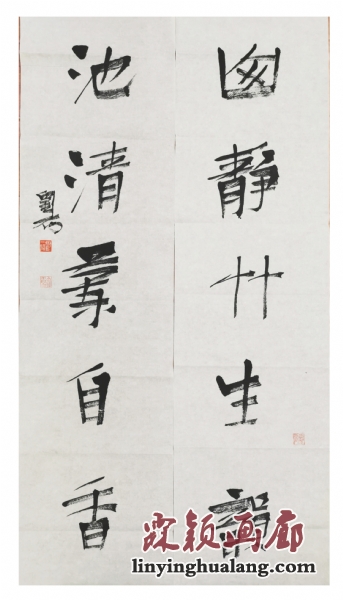 囪靜竹生韻
池清自香
霖颖画廊
linyinghualang.com